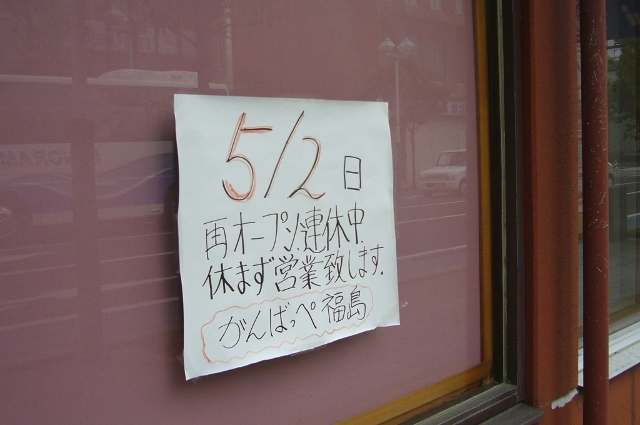 5/2日
再オープン.連休中
休まず営業致します.
がんばっぺ福島